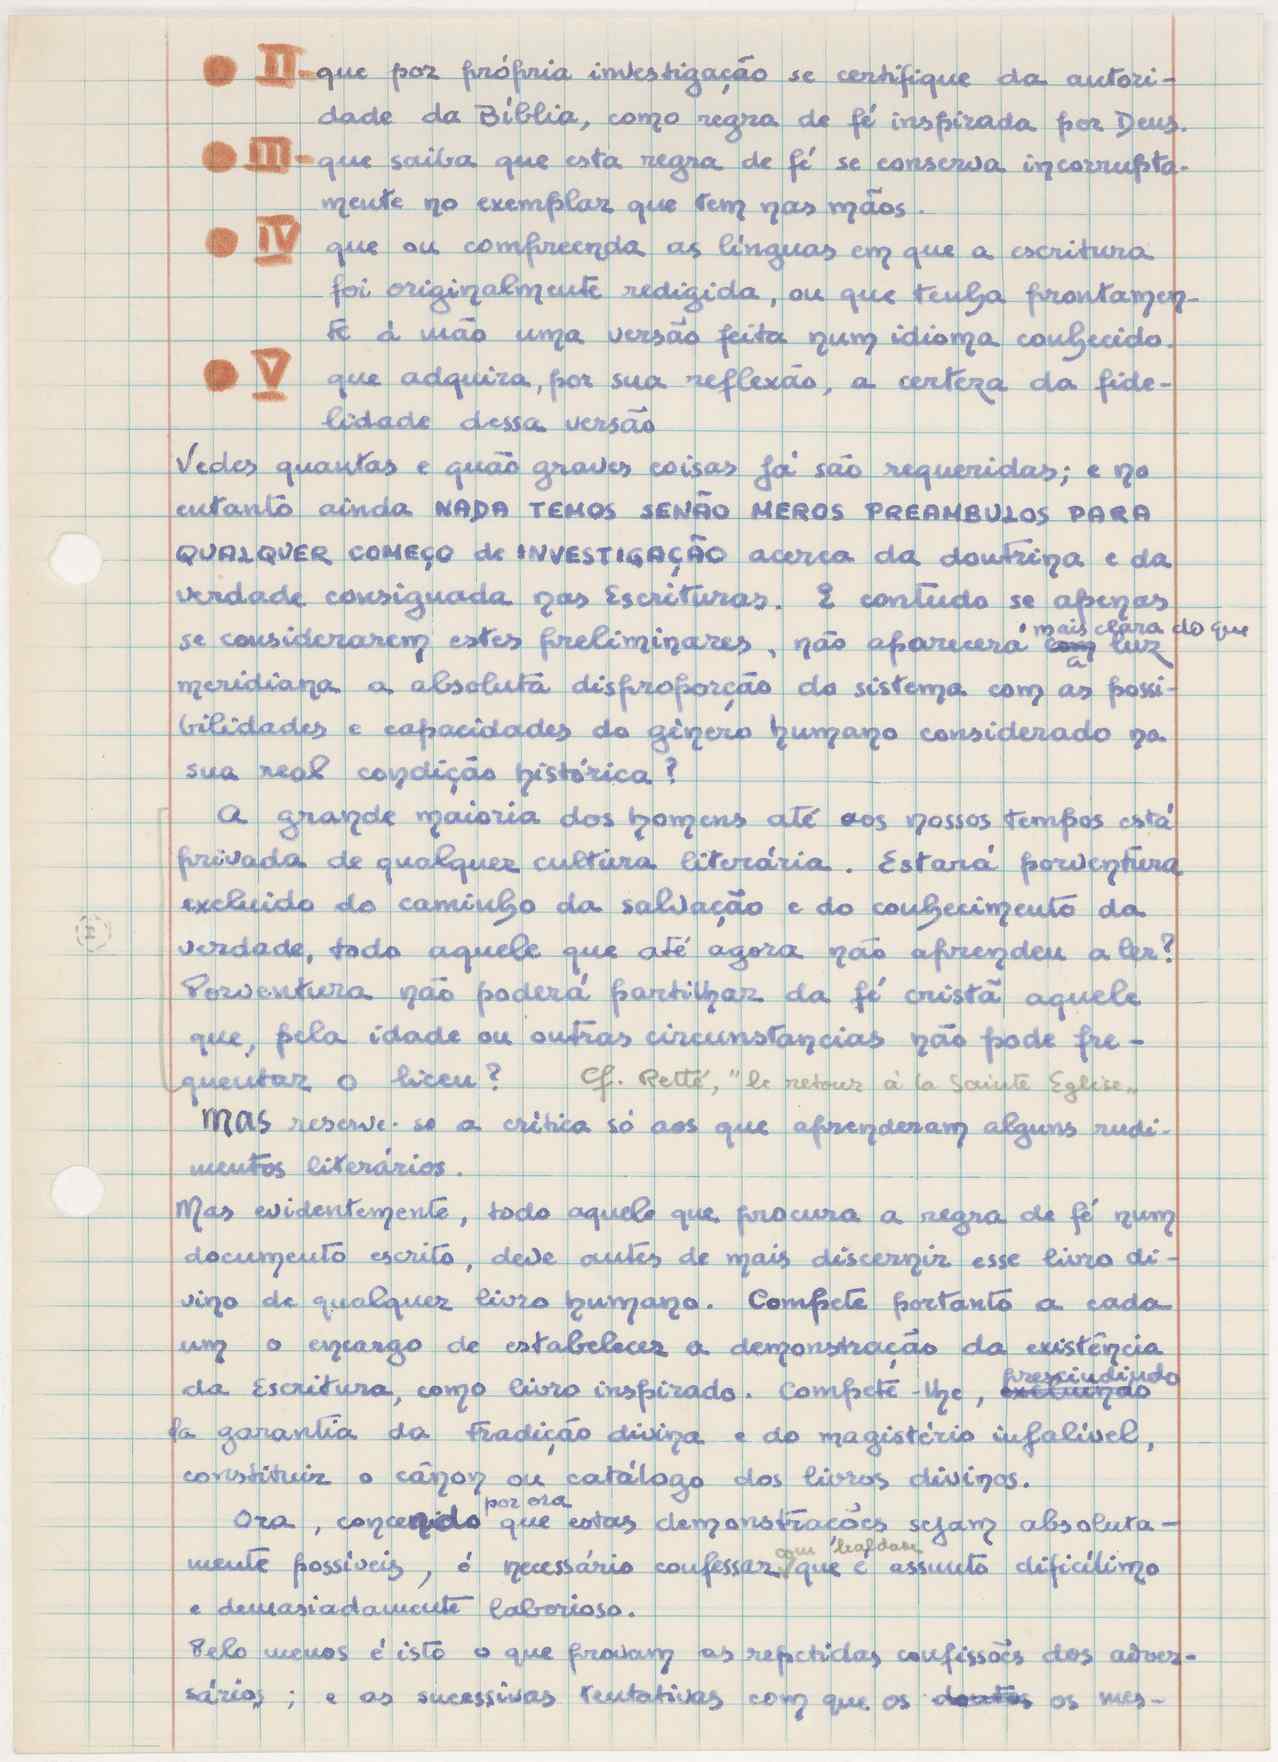 II - que por própria investigação se certifique da autori-
dade da Bíblia, como regra de fé inspirada por Deus.
III - que saiba que esta regra de fé se conserva incorrupta-
mente no exemplar que tem nas mãos.
IV que ou compreenda as línguas em que a escritura
foi originalmente redigida, ou que tenha prontamen-
te à mão uma versão feita num idioma conhecido.
V que adquira, por sua reflexão, a certeza da fide-
lidade dessa versão
Vedes quantas e quão graves coisas já são requeridas; e no
entanto ainda NADA TEMOS SENÃO MEROS PREAMBULOS PARA
QUALQUER COMEÇO de INVESTIGAÇÃO acerca da doutrina e da
verdade consignada nas Escrituras. E contudo se apenas
se considerarem estes preliminares, não aparecerá mais clara do que
com a luz
meridiana a absoluta disproporção do sistema com as possi-
bilidades e capacidades do género humano considerado na
sua real condição histórica?
A grande maioria dos homens até aos nossos tempos está
privada de qualquer cultura literária. Estará porventura
excluido do caminho da salvação e do conhecimento da
verdade, todo aquele que até agora não aprendeu a ler?
Porventura não poderá partilhar da fé cristã aquele
que, pela idade ou outras circunstancias não pode fre-
quentar o liceu? Cf. Retté, "le retour à la Sainte Eglise"
Mas reserve-se a crítica só aos que aprenderam alguns rudi-
mentos literários.
Mas evidentemente, todo aquele que procura a regra de fé num
documento escrito, deve antes de mais discernir esse livro di-
vino de qualquer livro humano. Compete portanto a cada
um o encargo de estabelecer a demonstração da existência
da Escritura, como livro inspirado. Compete-lhe, excluindo prescindindo
da garantia da tradição divina e do magistério infalível,
constituir o cânon ou catálogo dos livros divinos.
por ora
Ora, concenido que estas demonstrações sejam absoluta-
com lealdade
mente possíveis, é necessário confessar que é assunto dificílimo
e demasiadamente laborioso.
Pelo menos é isto o que provam as repetidas confissões dos adver-
sários; e as sucessivas tentativas com que os doutos os mes-